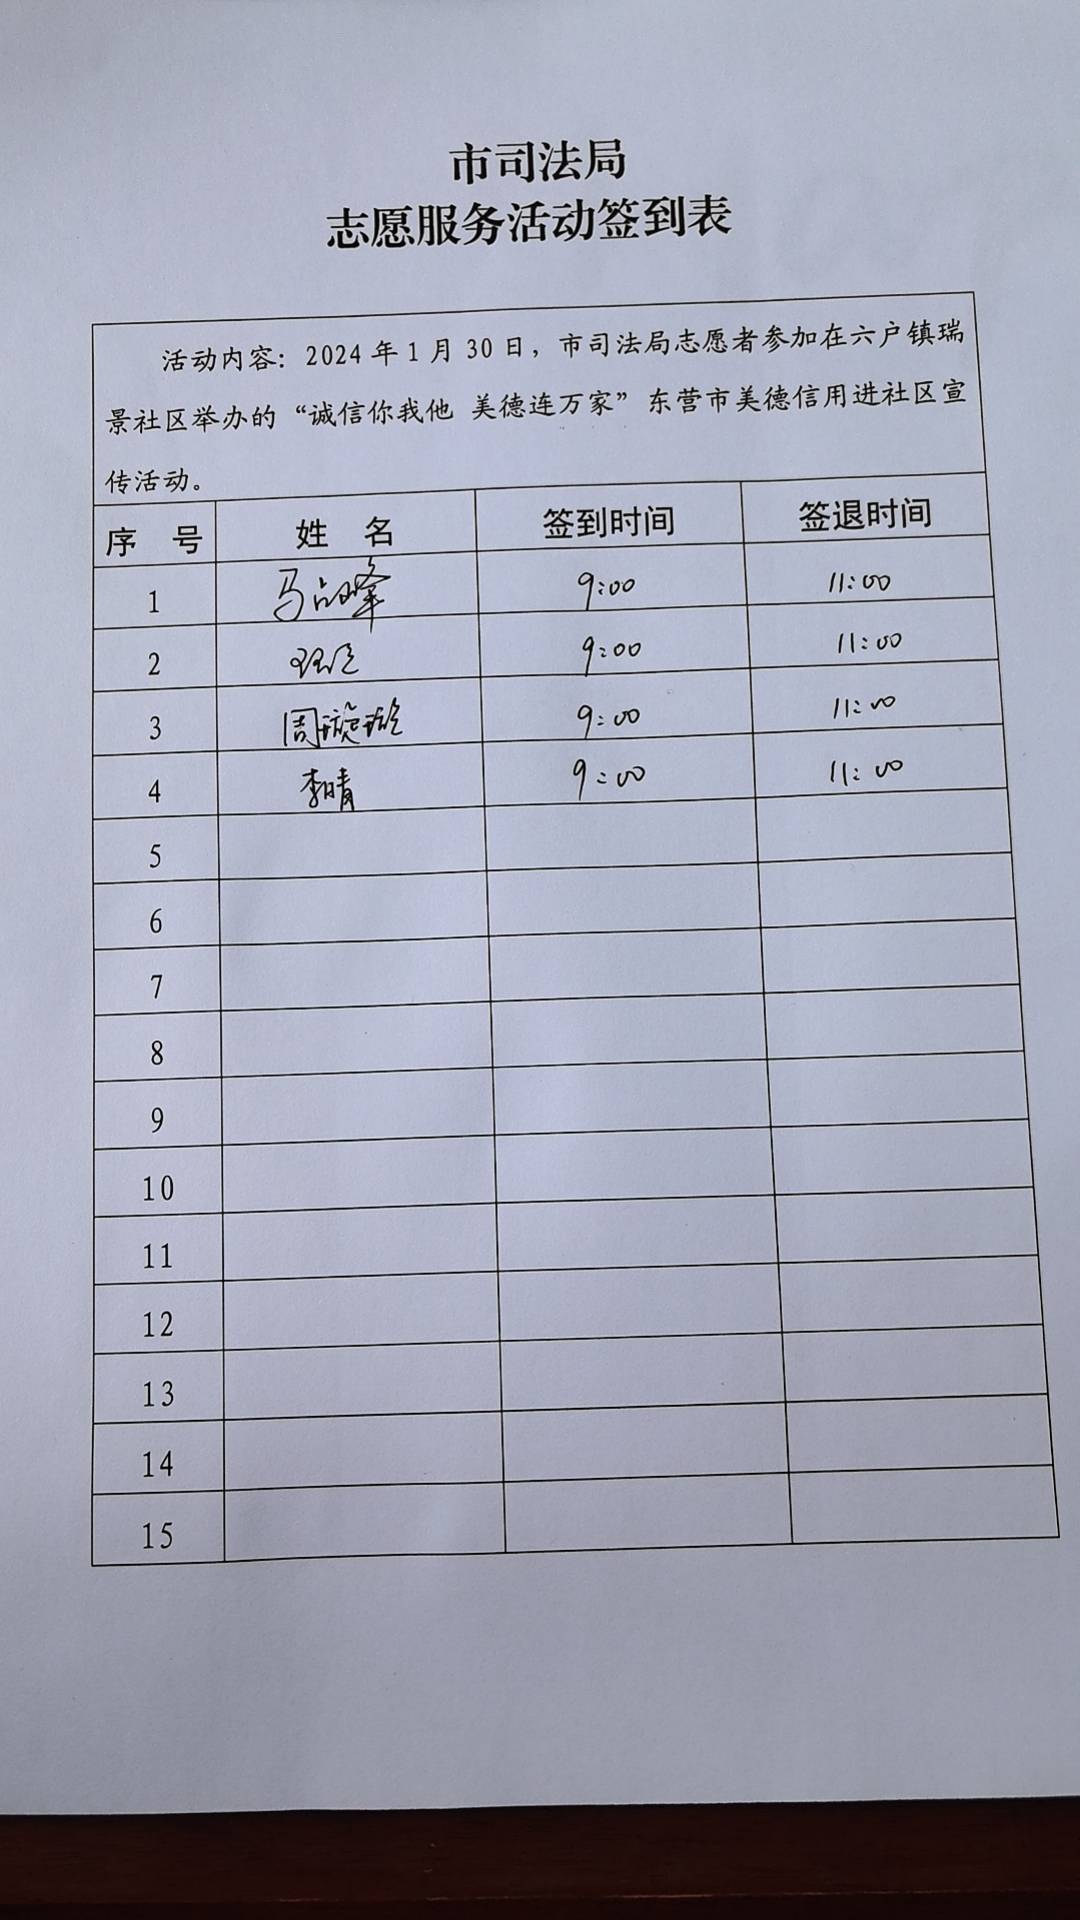 市司法局
志愿服务活动签到表
活动内容：2024年1月30日，市司法局志愿者参加在六户镇瑞
景社区举办的“诚信你我他 美德连万家”东营市美德信用进社区宣
传活动。
序 号 姓 名 签到时间 签退时间
1 马 峰 9:00 11:00
2 9:00 11:00
3 周璇璇 9:00 11:00
4 李晴 9:00 11:00
5
6
7
8
9
10
11
12
13
14
15